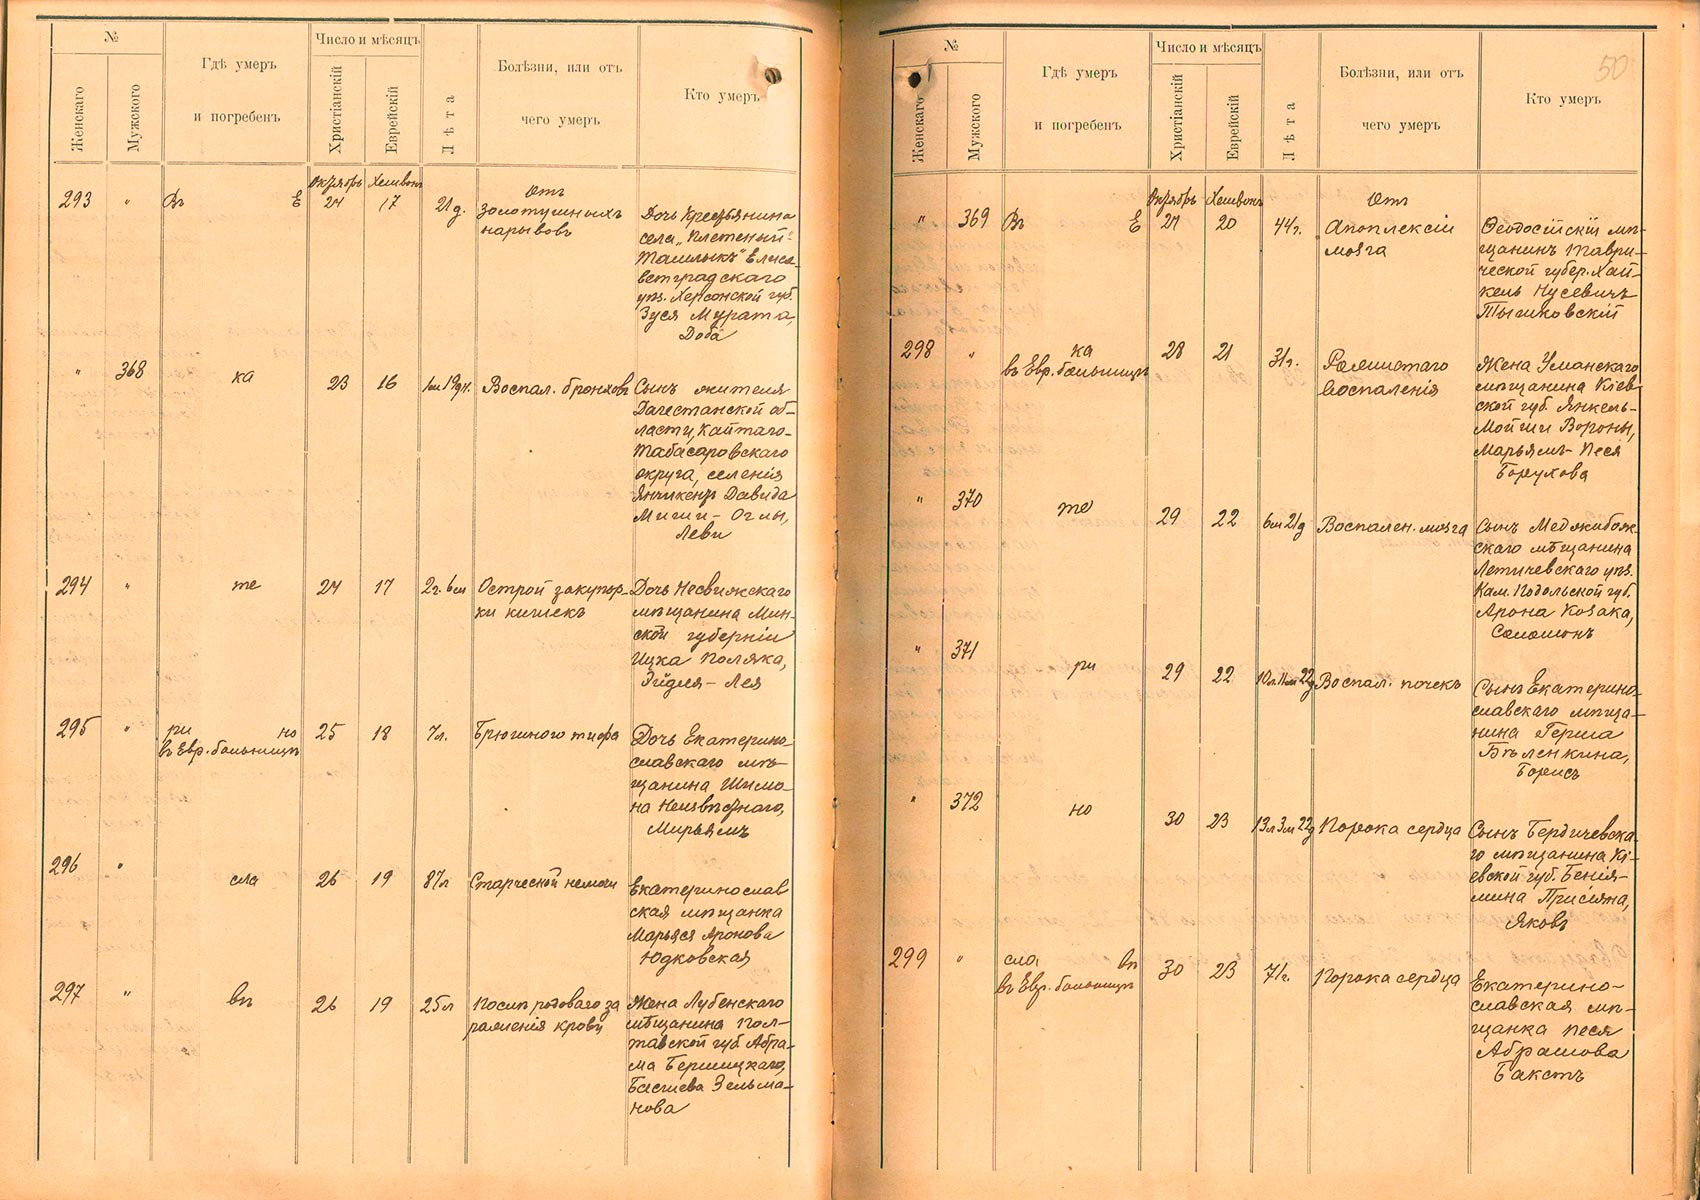 №
Женскаго
Мужского
Гдѣ умеръ
и погребенъ
Число и мѣсяцъ
Христіанскій
Еврейскій
Лѣта
Болѣзни, или отъ
чего умеръ
Кто умеръ
Октябрь Хешвонъ
293 " Въ Е 24 17 21 д.
Отъ
золотушныхъ
нарывовъ
Дочь крестьянина
села „Плетеный
Ташлыкъ" Елиса-
ветградскаго
уѣз. Херсонской губ.
Зуся Мурата,
Доба
" 368 ка 23 16 Воспал. бронховъ
Сынъ жителя
Дагестанской об-
ласти, Кайтаго-
Табасаровскаго
округа, селенія
Янгикентъ Давида
Миши-Оглы,
Леви
294 " те 24 17 2 г. 6 м
Острой закупор-
ки кишекъ
Дочь Несвижскаго
мѣщанина Мин-
ской губерніи
Ицка Поляка,
Эйдля-Лея
295 " ри но
въ Евр. больницѣ
25 18 7 л. Брюшного тифа
Дочь Екатерино-
славскаго мѣ-
щанина Шимо-
на Неизвѣстнаго,
Мирьямъ
296 " сла 26 19 87 л Старческой немочи
Екатеринослав
ская мѣщанка
Марьяся Аронова
Юдковская
297 " вѣ 26 19 25 л
Послѣ родоваго за
раженія крови
Жена Лубенскаго
мѣщанина Пол-
тавской губ Абра-
ма Бершицкаго,
Басшева Зельма-
нова
50
№
Женскаго
Мужского
Гдѣ умеръ
и погребенъ
Число и мѣсяцъ
Христіанскій
Еврейскій
Лѣта
Болѣзни, или отъ
чего умеръ
Кто умеръ
Октябрь Хешвонъ
" 369 Въ Е 27 20 44 г.
Отъ
Апоплексіи
мозга
Ѳеодосійскій мѣ-
щанинъ Таври-
ческой губер. Хай-
кель Нусевичъ
Тышковскій
298 " ка
въ Евр. больницѣ
28 21 31 г.
воспаленія
Жена Уманскаго
мѣщанина Кіев-
ской губ. Янкель-
Мойши Вороны,
Марьямъ-Песя
Борухова
" 370 те 29 22 6 м 21 д Воспален. мозга
Сынъ Меджибож-
скаго мѣщанина
Летичевскаго уѣз.
Кам. Подольской губ.
Арона Козака,
Соломонъ
" 371 ри 29 22 10 л. 11 м 22 д Воспал. почекъ
Сынъ Екатерино-
славскаго мѣща-
нина Герша
Бѣленкина,
Борисъ
" 372 но 30 23 13 л 3 м 22 д Порока сердца
Сынъ Бердичевска-
го мѣщанина Кі-
евской губ. Бенія-
мина Присяжа,
Яковъ
299 " сла вѣ
въ Евр. больницѣ
30 23 71 г. Порока сердца
Екатерино-
славская мѣ-
щанка Песя
Абрамова
Бакстъ